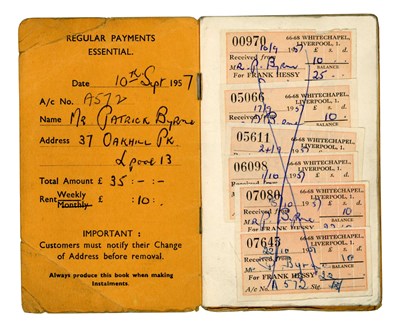 REGULAR PAYMENTS
ESSENTIAL.
Date 10th Sept 1957
A/c No. A572
Name Mr PATRICK Byrne
Address 37 OAKHILL PK.
Lpool 13
Total Amount £ 35 : - : -
Rent Weekly Monthly £ : 10 : -
IMPORTANT :
Customers must notify their Change
of Address before removal.
Always produce this book when making
Instalments.
00970 66-68 WHITECHAPEL,
LIVERPOOL, 1.
10/9 1957 £ s. d.
Received from
Mr P. Byrne 10
BALANCE
For FRANK HESSY 25
05066 66-68 WHITECHAPEL,
LIVERPOOL, 1.
17/9 1957 £ s. d.
10
BALANCE
05611 66-68 WHITECHAPEL,
LIVERPOOL, 1.
195 £ s. d.
06098 66-68 WHITECHAPEL,
LIVERPOOL, 1.
1/10 1957 £ s. d.
Received 10
07080 66-68 WHITECHAPEL,
LIVERPOOL, 1.
195 £ s. d.
Received from 10
P. Byrne BALANCE
07645 66-68 WHITECHAPEL,
LIVERPOOL, 1.
10 195 £ s. d.
Received from 10
Byrne BALANCE
For FRANK HESSY
A/c No. A 572